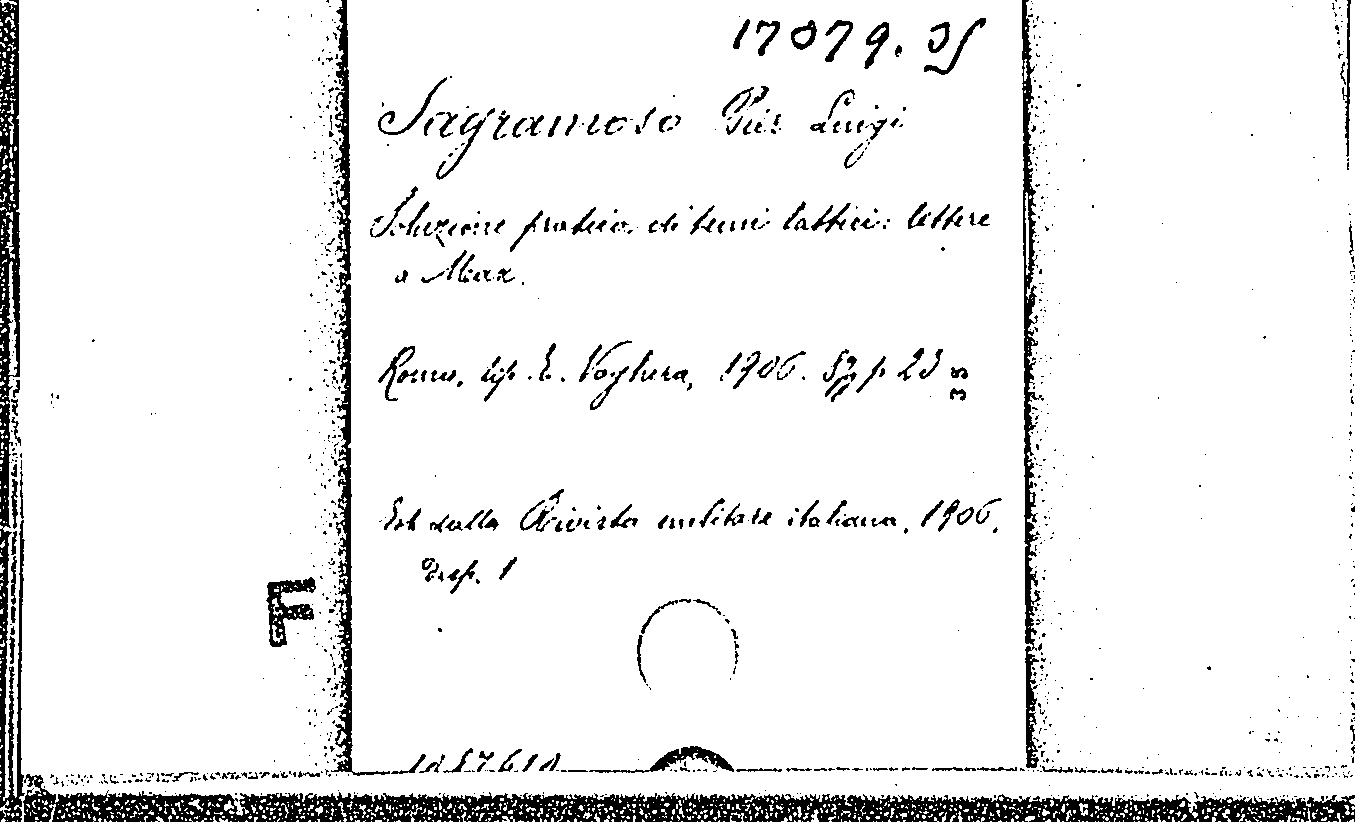 17079. 35
Sagramoso Pier Luigi
Soluzione pratica di temi tattici: lettere
a Max.
Roma, tip. E. Voghera, 1906. 8º p 23
Est dalla Rivista militare italiana, 1906,
Disp. 1
F